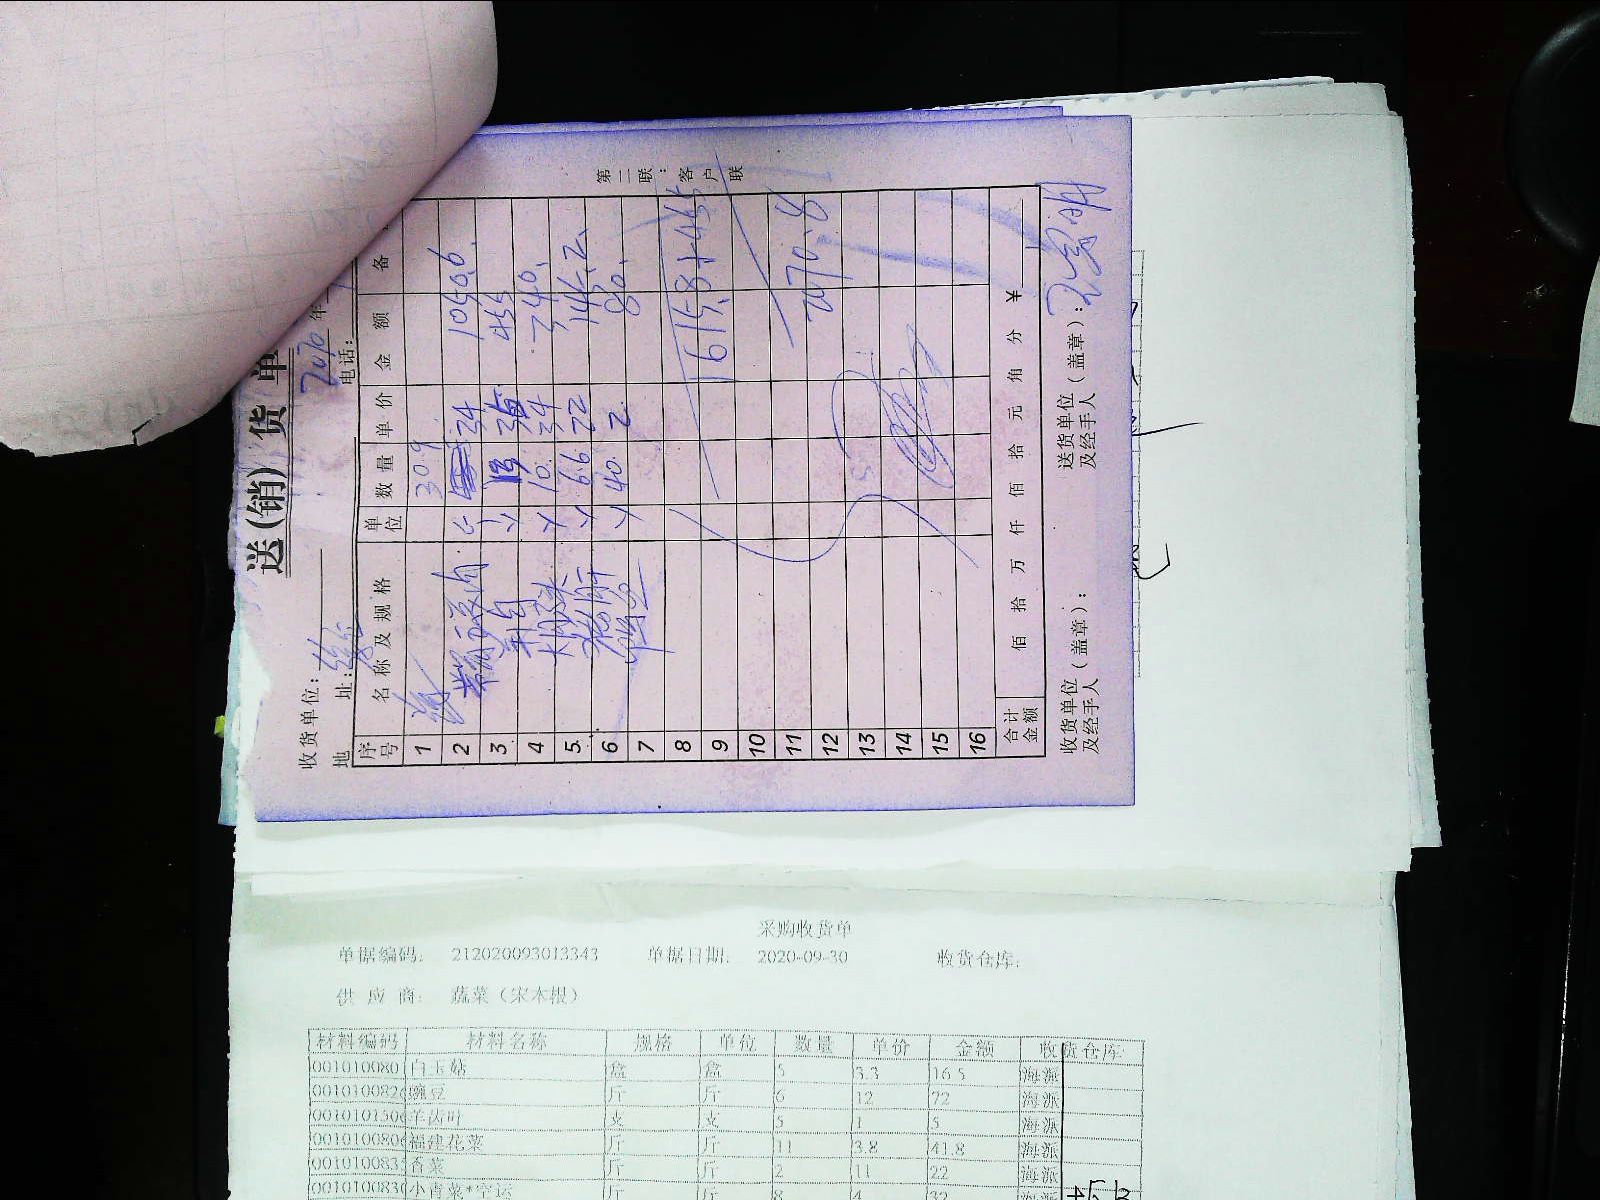 送(销)货单
收货单位:
2020年
地址:
电话:
序号 名称及规格 单位 数量 单价 金额 备
1 30.9
2 34 1050.6
3 13 35 455
4 10. 34 340.
5 6.6 22 145.2
6 40. 2 80.
7
8 1615.8+455
9
10
11 2070.8
12
13
14
15
16
合计金额 佰 拾 万 仟 佰 拾 元 角 分 ¥
收货单位及经手人(盖章): 送货单位及经手人(盖章):
第二联:客户联
采购收货单
单据编码: 212020093013343 单据日期: 2020-09-30 收货仓库:
供应商: 蔬菜(宋木根)
材料编码 材料名称 规格 单位 数量 单价 金额 收货仓库
001010080 白玉菇 盒 盒 5 3.3 16.5 海派
001010082 豌豆 斤 斤 6 12 72 海派
001010150 羊齿叶 支 支 5 1 5 海派
001010080 福建花菜 斤 斤 11 3.8 41.8 海派
001010083 香菜 斤 斤 2 11 22 海派
001010083 小青菜*空运 斤 斤 8 4 32 海派